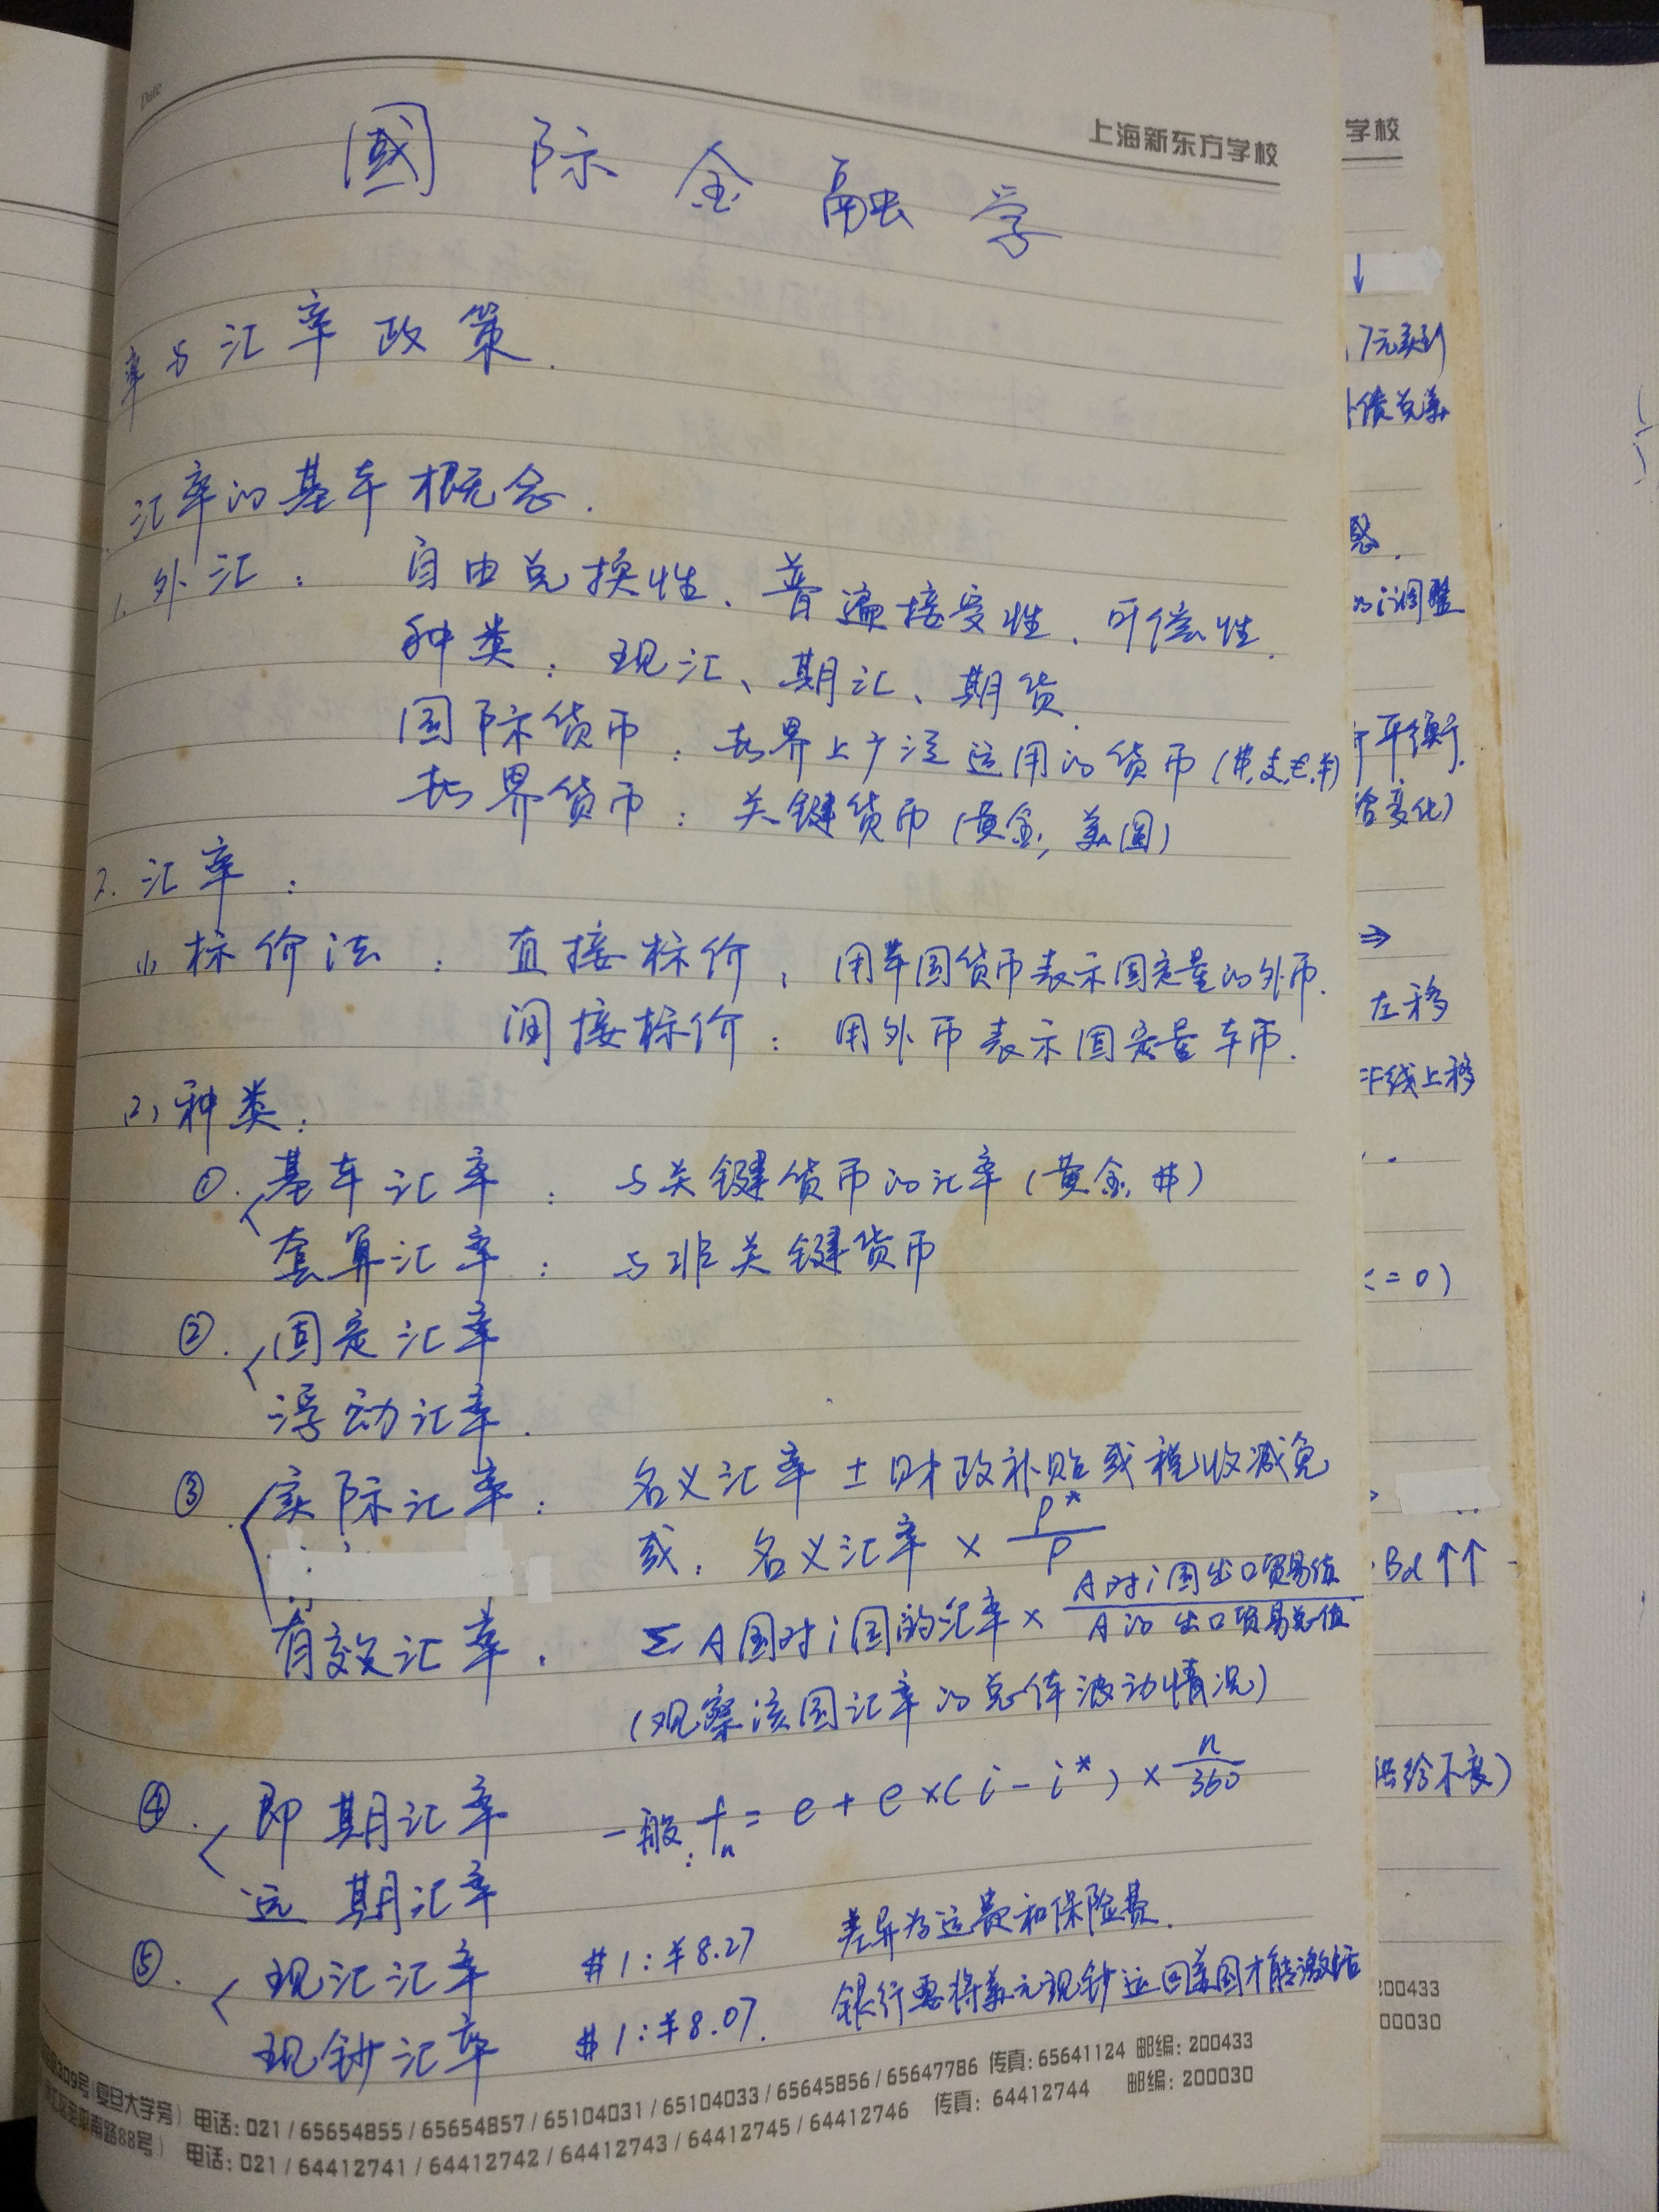 Date
上海新东方学校
國际金融学
率与汇率政策.
汇率的基本概念.
1. 外汇： 自由兑换性、普遍接受性、可偿性.
种类：现汇、期汇、期货.
国际货币：世界上广泛运用的货币
世界货币：关键货币(黄金, 美圆)
2. 汇率：
(1) 标价法：直接标价，用本国货币表示固定量的外币.
间接标价：用外币表示固定量本币.
(2) 种类：
①. 基本汇率：与关键货币的汇率(黄金, $)
套算汇率：与非关键货币
②. 固定汇率
浮动汇率.
③ 实际汇率：名义汇率 ± 财政补贴或税收减免
或：名义汇率 × P*/P
有效汇率. Σ A国对i国的汇率 × A对i国出口贸易值/A的出口贸易总值
(观察该国汇率的总体波动情况)
④. 即期汇率 一般: fn = e + e×(i - i*) × n/360
远期汇率
⑤. 现汇汇率 $1:¥8.27 差异为运费和保险费.
现钞汇率 $1:¥8.07. 银行要将美元现钞运回美国才能激活
309号(复旦大学旁) 电话: 021 / 65654855 / 65654857 / 65104031 / 65104033 / 65645856 / 65647786 传真: 65641124 邮编: 200433
南路88号) 电话: 021 / 64412741 / 64412742 / 64412743 / 64412745 / 64412746 传真: 64412744 邮编: 200030
学校
↓
惑.
的调整
平衡.
变化)
⇒
左移
线上移
= 0)
Bd ↑↑
供给不变)
200433
00030